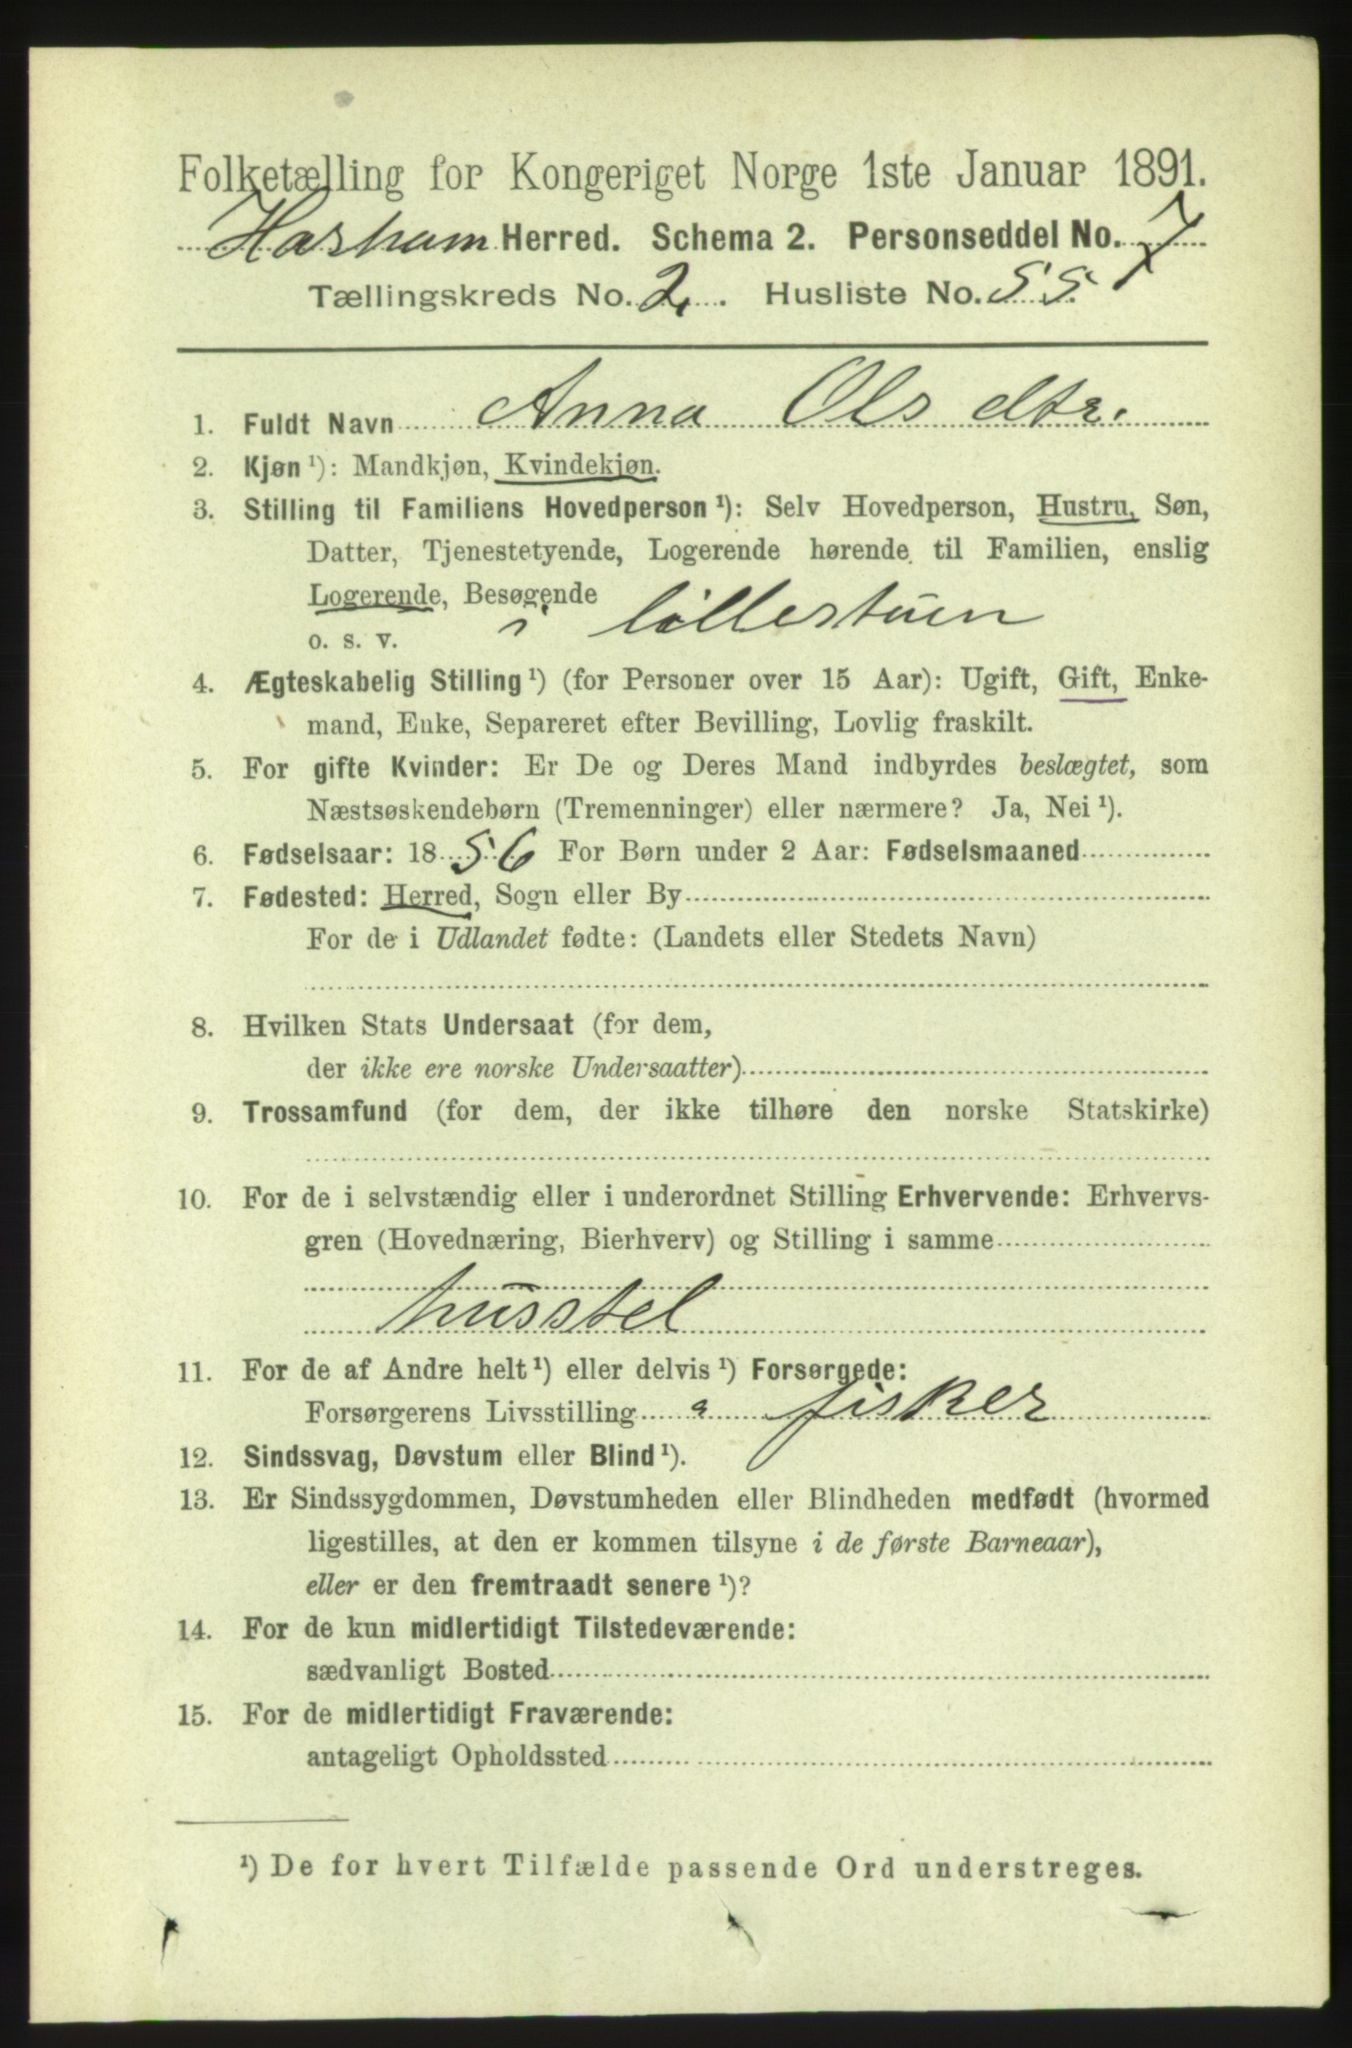 Folketælling for Kongeriget Norge 1ste Januar 1891.
Harham Herred. Schema 2. Personseddel No. 7
Tællingskreds No. 2. Husliste No. 55
1. Fuldt Navn Anna Ols dtr.
2. Kjøn ¹): Mandkjøn, Kvindekjøn.
3. Stilling til Familiens Hovedperson ¹): Selv Hovedperson, Hustru, Søn,
Datter, Tjenestetyende, Logerende hørende til Familien, enslig
Logerende, Besøgende
o. s. v. i lillestuen
4. Ægteskabelig Stilling ¹) (for Personer over 15 Aar): Ugift, Gift, Enke-
mand, Enke, Separeret efter Bevilling, Lovlig fraskilt.
5. For gifte Kvinder: Er De og Deres Mand indbyrdes beslægtet, som
Næstsøskendebørn (Tremenninger) eller nærmere? Ja, Nei ¹).
6. Fødselsaar: 1856 For Børn under 2 Aar: Fødselsmaaned
7. Fødested: Herred, Sogn eller By
For de i Udlandet fødte: (Landets eller Stedets Navn)
8. Hvilken Stats Undersaat (for dem,
der ikke ere norske Undersaatter)
9. Trossamfund (for dem, der ikke tilhøre den norske Statskirke)
10. For de i selvstændig eller i underordnet Stilling Erhvervende: Erhvervs-
gren (Hovednæring, Bierhverv) og Stilling i samme
husstel
11. For de af Andre helt ¹) eller delvis ¹) Forsørgede:
Forsørgerens Livsstilling a fisker
12. Sindssvag, Døvstum eller Blind ¹).
13. Er Sindssygdommen, Døvstumheden eller Blindheden medfødt (hvormed
ligestilles, at den er kommen tilsyne i de første Barneaar),
eller er den fremtraadt senere ¹)?
14. For de kun midlertidigt Tilstedeværende:
sædvanligt Bosted
15. For de midlertidigt Fraværende:
antageligt Opholdssted
¹) De for hvert Tilfælde passende Ord understreges.